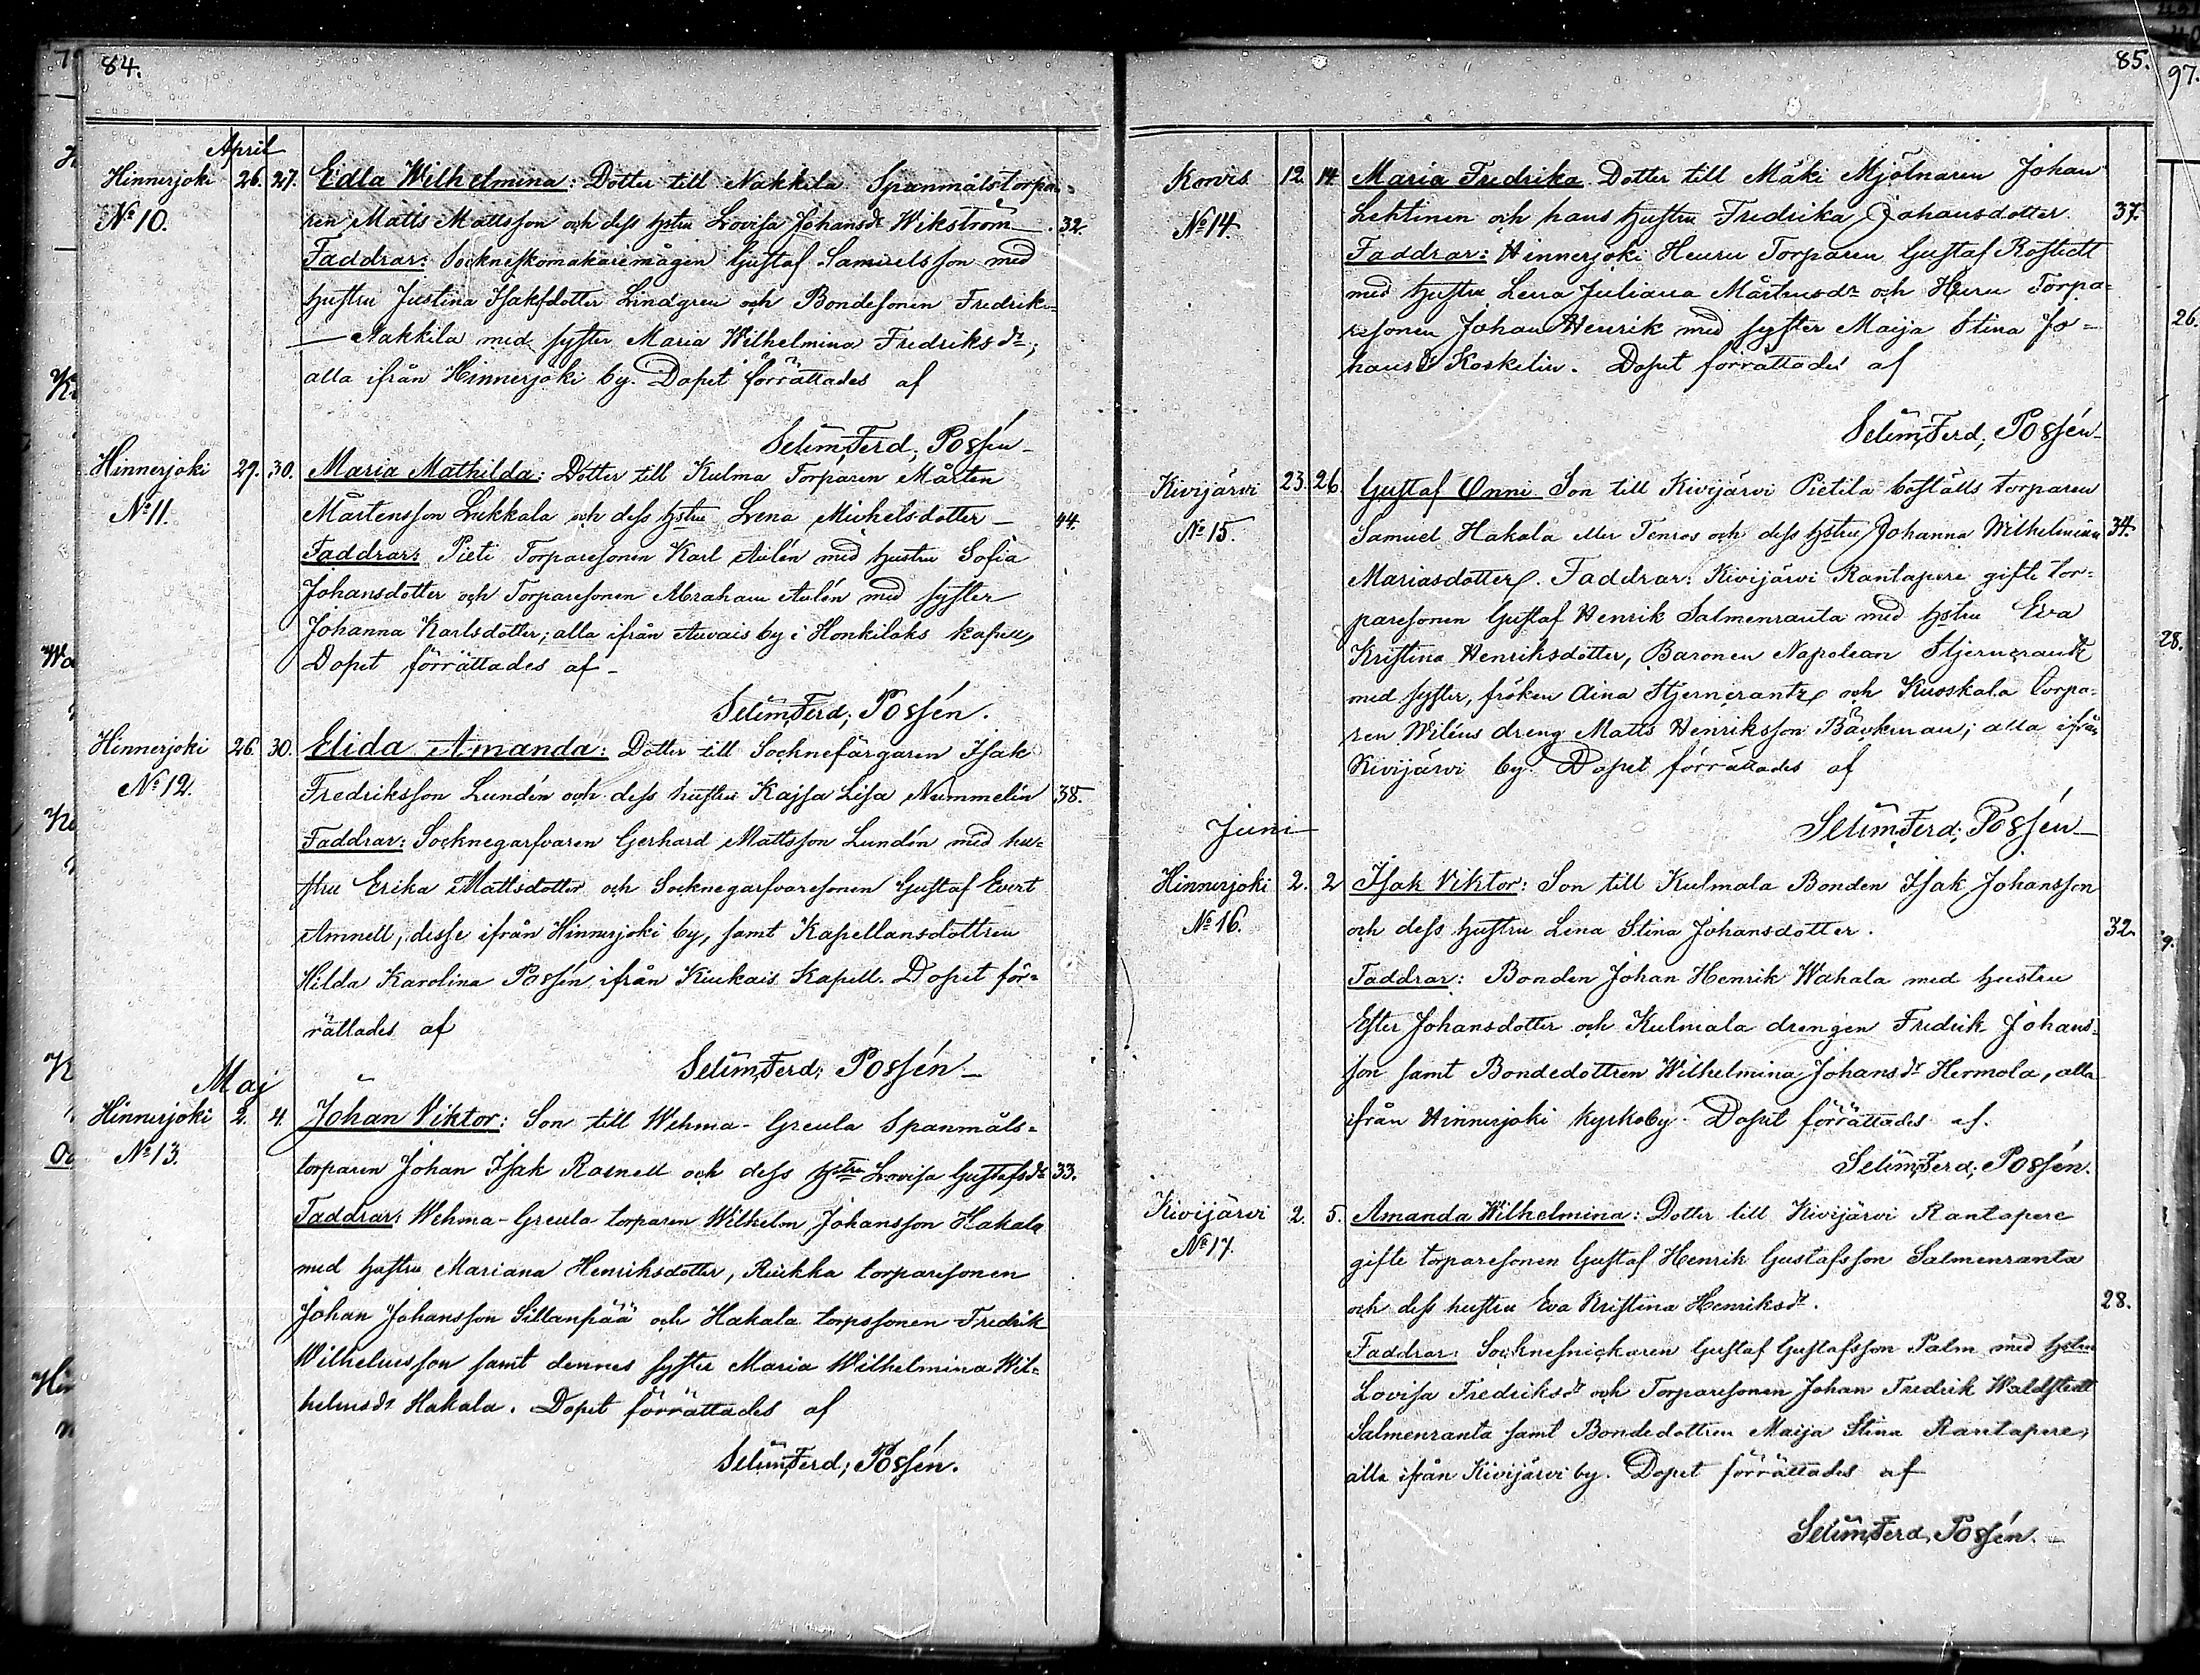 84.
April
Hinnerjoki 26. 27. Edla Wilhelmina: Dotter till Nakkila Spanmålstorpa=
№ 10. ren Matts Mattsson och dess hstru Lovisa Johansdr Wikström 32.
Faddrar: Sockneskomakaremågen Gustaf Samuelsson med
hustru Justina Isaksdotter Lindgren och Bondesonen Fredrik
Nakkila med syster Maria Wilhelmina Fredriksdr;
alla ifrån Hinnerjoki by. Dopet förrättades af
Selim Ferd; Possén
Hinnerjoki 29. 30. Maria Mathilda: Dotter till Kulma Torparen Mårten
№ 11. Mårtensson Lukkala och dess hstru Lena Michelsdotter 44.
Faddrar: Pieti Torparesonen Karl Aulén med hustru Sofia
Johansdotter och Torparesonen Abraham Aulén med syster
Johanna Karlsdotter; alla ifrån Auvais by i Honkilaks kapell,
Dopet förrättades af
Selim Ferd; Possén.
Hinnerjoki 26. 30. Elida Amanda: Dotter till Socknefärgaren Isak
№ 12. Fredriksson Lundén och dess hustru Kajsa Lisa Nummelin 38.
Faddrar: Socknegarfvaren Gerhard Mattsson Lundén med hu=
stru Erika Mattsdotter och Socknegarfvaresonen Gustaf Evert
Amnell, desse ifrån Hinnerjoki by, samt Kapellansdottren
Hilda Karolina Possén ifrån Kiukais Kapell. Dopet för=
rättades af
Selim Ferd; Possén
Maj
Hinnerjoki 2. 4. Johan Viktor: Son till Wehma-Greula Spanmåls=
№ 13. torparen Johan Isak Rasnell och dess hstru Lovisa Gustafsdr 33.
Faddrar: Wehma-Greula torparen Wilhelm Johansson Hakala
med hustru Mariana Henriksdotter, Riukka torparesonen
Johan Johansson Sillanpää och Hakala torpssonen Fredrik
Wilhelmsson samt dennes syster Maria Wilhelmina Wil=
helmsdr Hakala. Dopet förrättades af
Selim Ferd; Possén.
85.
Korvis 12. 14. Maria Fredrika Dotter till Mäki Mjölnaren Johan
№ 14. Lehtinen och hans hustru Fredrika Johansdotter. 37.
Faddrar: Hinnerjoki Heuru Torparen Gustaf Rostedt
med hustru Lena Juliana Mårtensdr och Heuru Torpa=
resonen Johan Henrik med syster Maija Stina Jo=
hansdr Koskelin. Dopet förrättades af
Selim Ferd; Possén
Kivijärvi 23. 26. Gustaf Onni Son till Kivijärvi Pietila boställs torparen
№ 15. Samuel Hakala eller Tenros och dess hstru Johanna Wilhelmina 34.
Mariasdotter. Faddrar: Kivijärvi Rantapere gifte tor=
paresonen Gustaf Henrik Salmenranta med hstru Eva
Kristina Henriksdotter, Baronen Napolean Stjerncrantz
med syster, fröken Aina Stjerncrantz och Kuoskala torpa=
ren Wiléns dreng Matts Henriksson Bäckman; alla ifrån
Kivijärvi by. Dopet förrättades af
Selim Ferd; Possén
Juni
Hinnerjoki 2. 2 Isak Viktor: Son till Kulmala Bonden Isak Johansson
№ 16. och dess hustru Lena Stina Johansdotter. 32.
Faddrar: Bonden Johan Henrik Wahala med hustru
Ester Johansdotter och Kulmala drengen Fredrik Johans=
son samt Bondedottren Wilhelmina Johansdr Hermola, alla
ifrån Hinnerjoki kyrkoby. Dopet förrättades af.
Selim Ferd; Possén.
Kivijärvi 2. 5. Amanda Wilhelmina: Dotter till Kivijärvi Rantapere
№ 17. gifte torparesonen Gustaf Henrik Gustafsson Salmenranta
och dess hustru Eva Kristina Henriksdr. 28.
Faddrar: Socknesnickaren Gustaf Gustafsson Palm med hstru
Lovisa Fredriksdr och Torparesonen Johan Fredrik Waldstedt
Salmenranta samt Bondedottren Maija Stina Rantapere,
alla ifrån Kivijärvi by. Dopet förrättades af
Selim Ferd; Possén.
97.
26.
28.